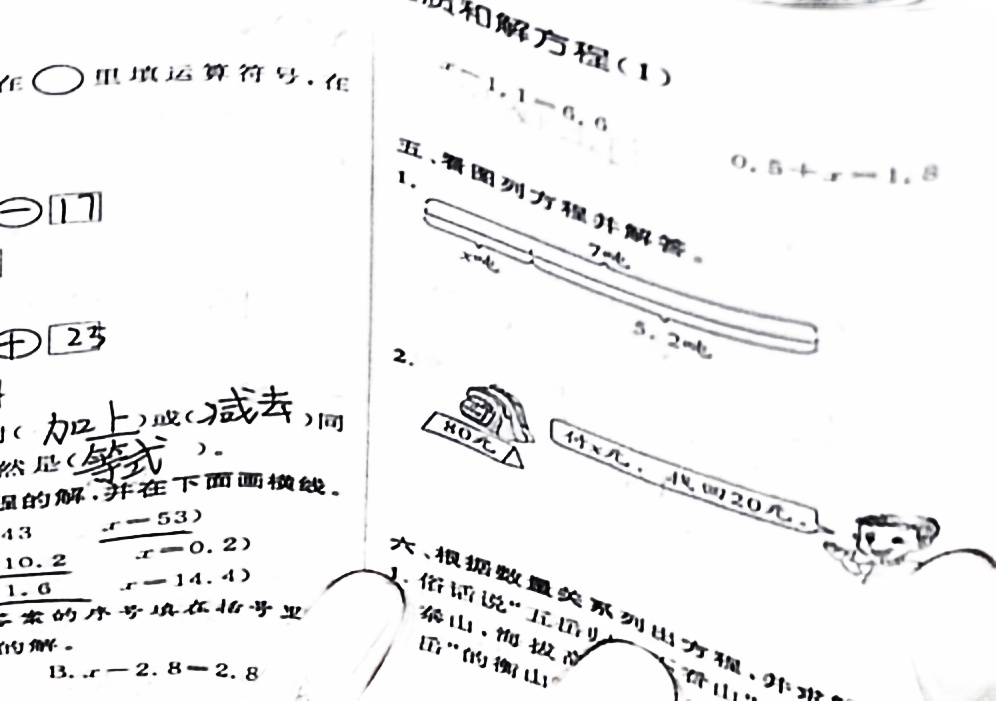 在○里填运算符号,在
17
23
(加上)或(减去)同
然是(等式)。
的解,并在下面画横线。
43 x=53)
10.2 x=0.2)
1.6 x=14.4)
案的序号填在括号里
的解。
B. x-2.8=2.8
和解方程(1)
x-1.1=6.6
0.5+x=1.8
五、看图列方程并解答。
1.
7吨
x吨
5.2吨
2.
80元
付x元,找回20元。
六、根据数量关系列出方程,并求
1. 俗话说“五岳
泰山,海拔
岳”的衡山